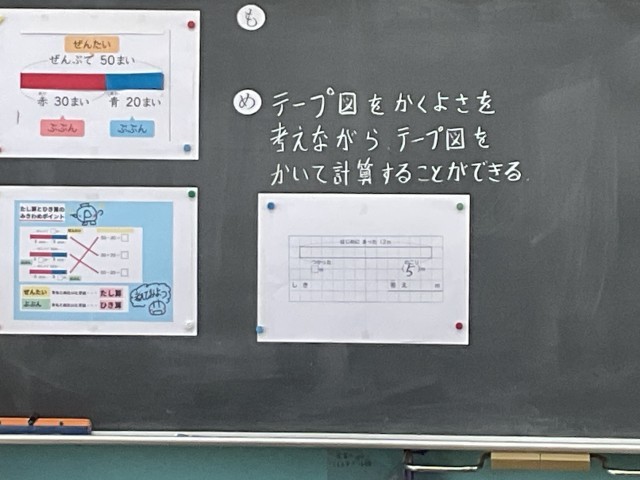 ぜんたい
ぜんぶで 50まい
赤 30まい 青 20まい
ぶぶん ぶぶん
も
め テープ図をかくよさを
考えながら、テープ図を
かいて計算することができる。
たし算とひき算の
みきわめポイント
ぜんたい
たし算
ぶぶん
ひき算
はじめに
つかった
のこり
5
しき
答え
m